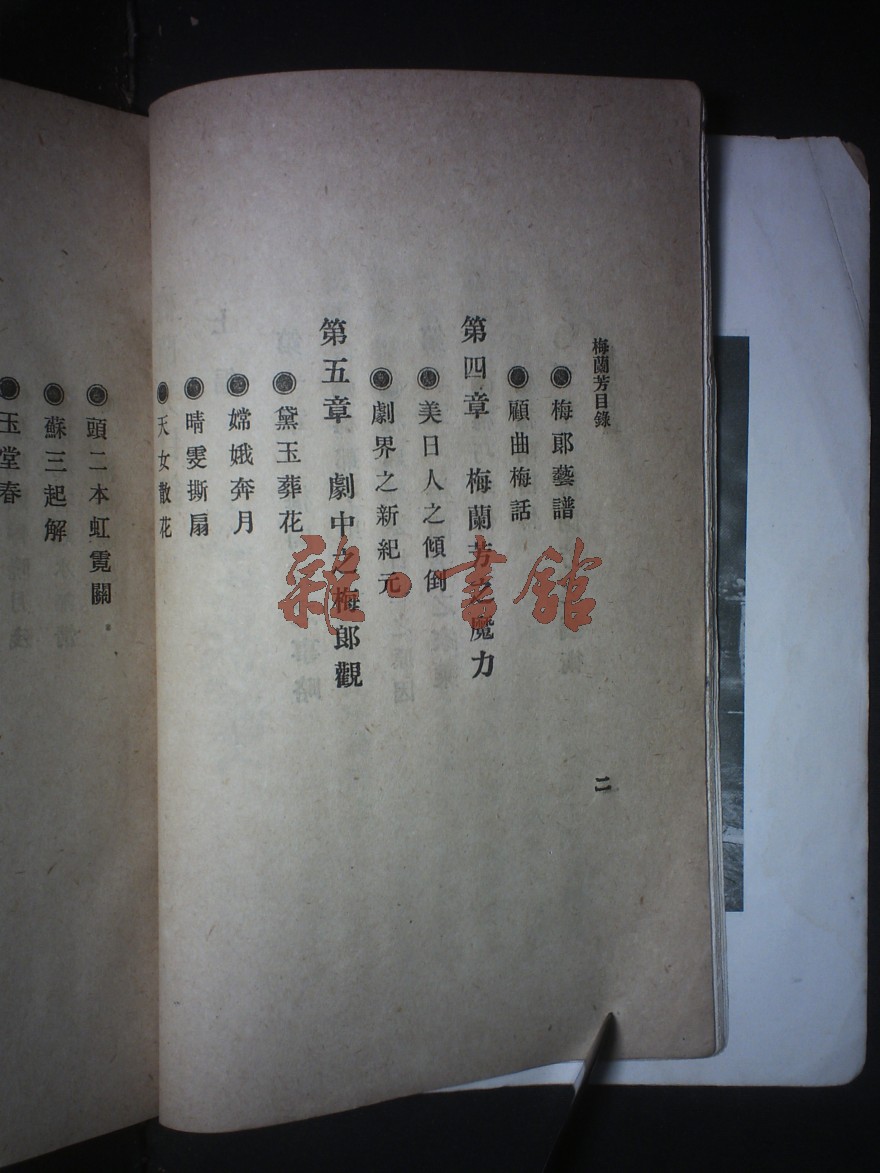 梅蘭芳目錄
●梅郎藝譜
●顧曲梅話
第四章 梅蘭芳之魔力
●美日人之傾倒
●劇界之新紀元
第五章 劇中之梅郎觀
●黛玉葬花
●嫦娥奔月
●晴雯撕扇
●天女散花
二
●頭二本虹霓關
●蘇三起解
●玉堂春
雜·書館